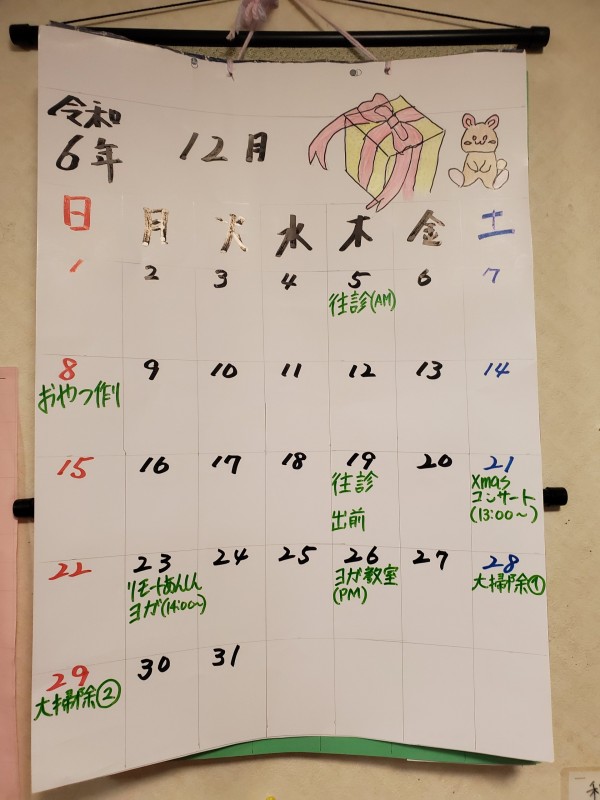 令和
6年 12月
日 月 火 水 木 金 土
1 2 3 4 5 6 7
往診(AM)
8 9 10 11 12 13 14
おやつ作り
15 16 17 18 19 20 21
往診
出前
Xmas
コンサート
(13:00〜)
22 23 24 25 26 27 28
リモートあんしん
ヨガ(14:00〜)
ヨガ教室
(PM)
大掃除①
29 30 31
大掃除②